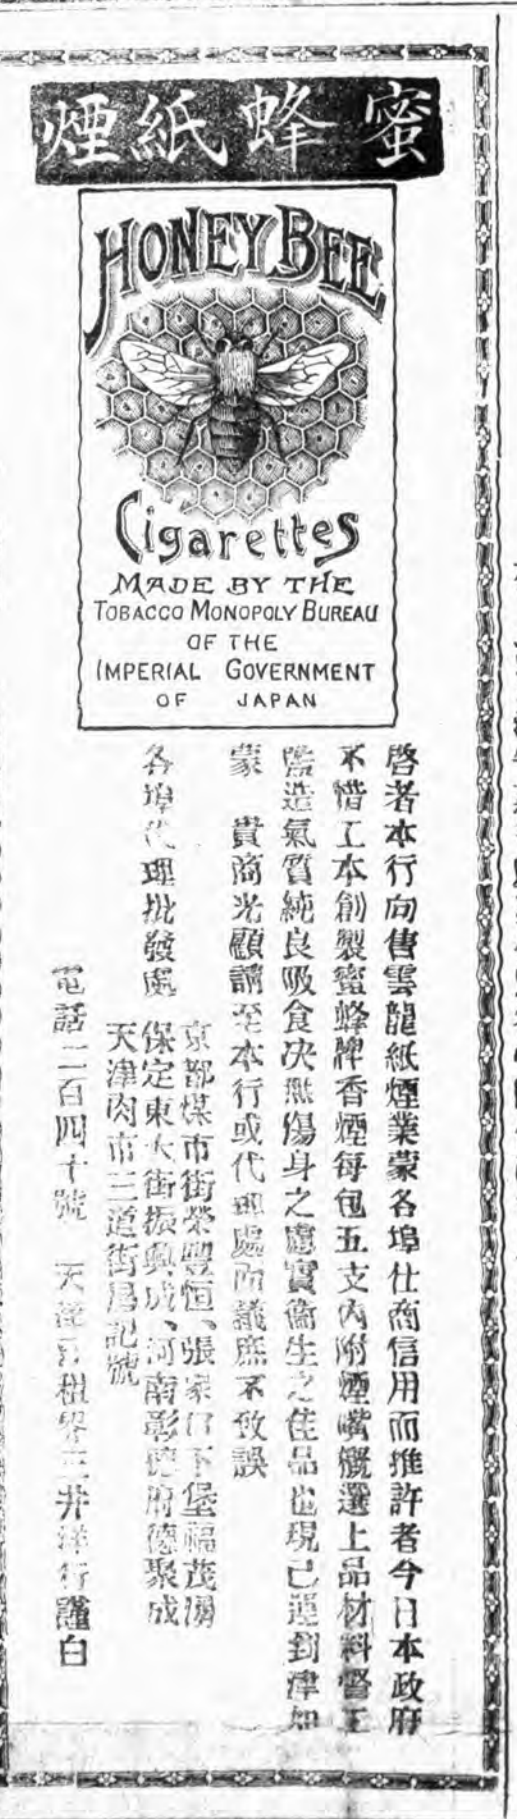 蜜蜂紙煙
HONEY BEE
Cigarettes
MADE BY THE
TOBACCO MONOPOLY BUREAU
OF THE
IMPERIAL GOVERNMENT
OF JAPAN
啓者本行向售雲龍紙煙業蒙各埠仕商信用而推許者今日本政府
不惜工本創製蜜蜂牌香煙每包五支內附煙嘴概選上品材料督工
監造氣質純良吸食決無傷身之慮實衛生之佳品也現已運到津如
蒙 貴商光顧請至本行或代理處面議庶不致誤
各埠代理批發處
京都煤市街榮豐恒、張家口下堡福茂湧
保定東大街振興成、河南彰德府德聚成
天津肉市三道街昌記號
電話二百四十號 天津日租界三井洋行謹白